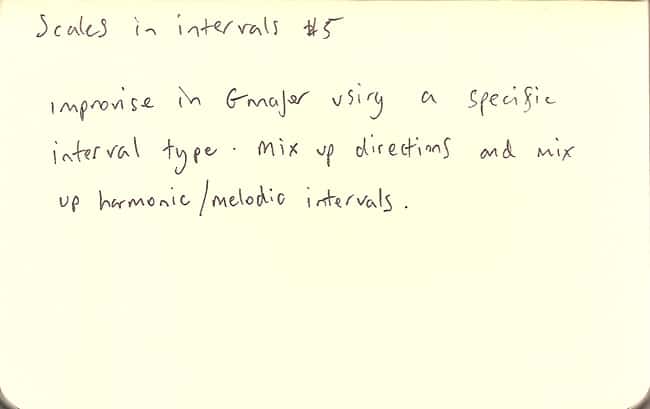 Scales in intervals #5
improvise in Gmajor using a specific
interval type. mix up directions and mix
up harmonic/melodic intervals.